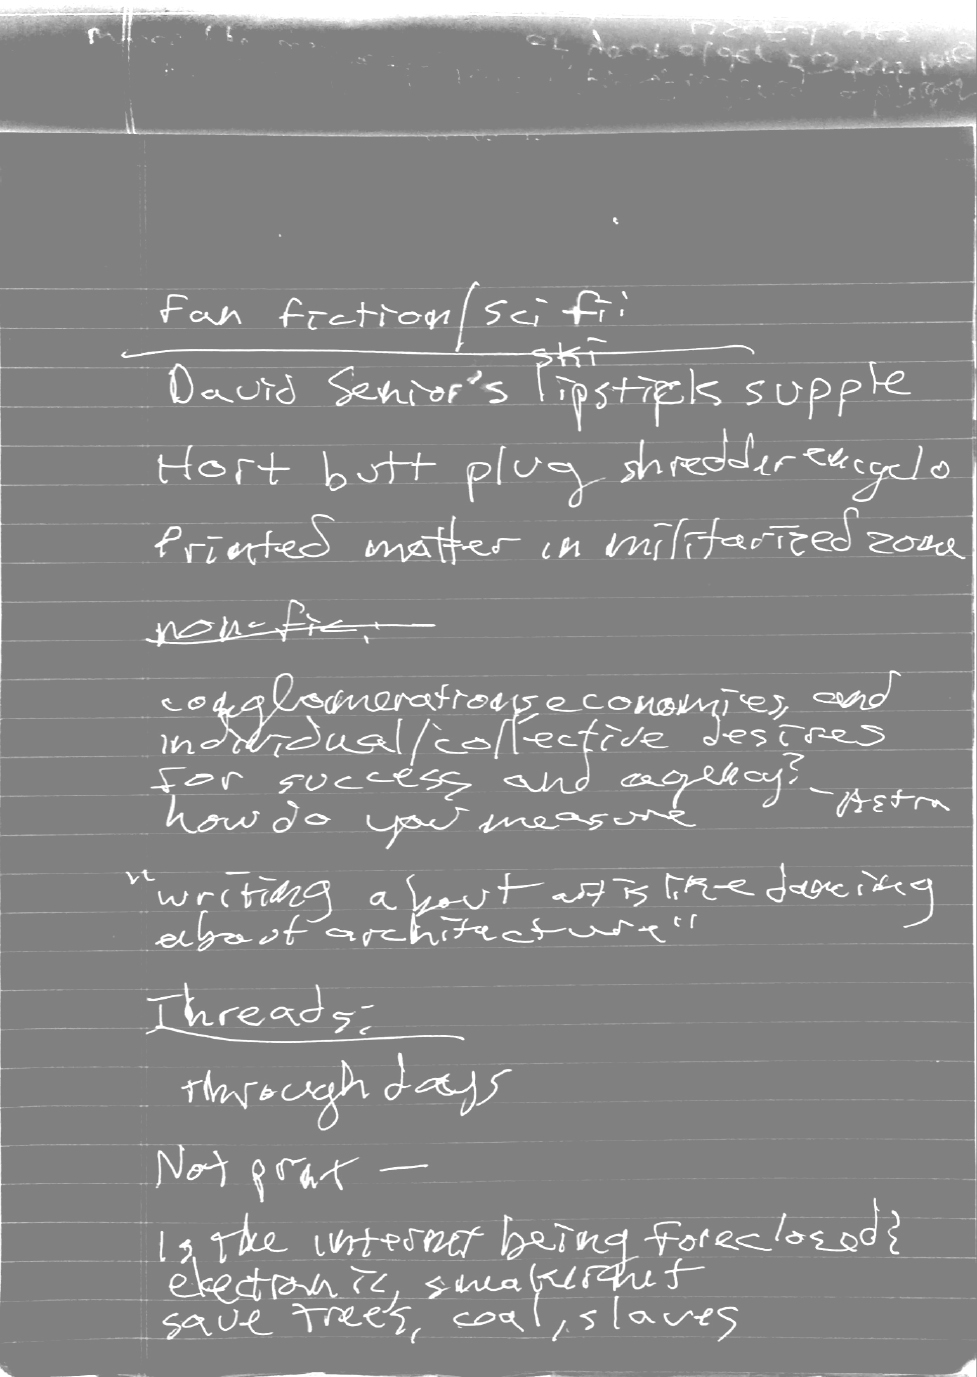 Fan fiction/sci fi:
ski
David Senior's lipsticks supple
Hort butt plug shredder
Printed matter in militarized zone
non-fic.
conglomerations economies, and
individual/collective desires
for success and agency?
how do you measure
- Astra
"writing about art is like dancing
about architecture"
Threads:
through days
Not print —
Is the internet being foreclosed?
electronic,
save trees, coal, slaves